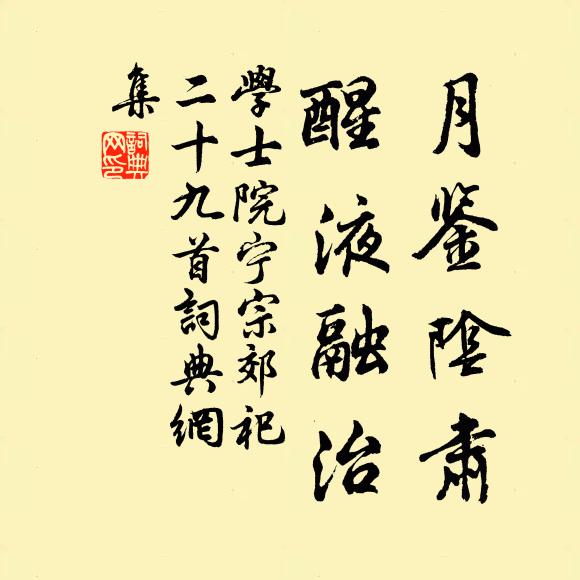 月鉴陰肅
醒液融治
學士院宁宗郊祀
二十九首詞典網
集
詞典网印